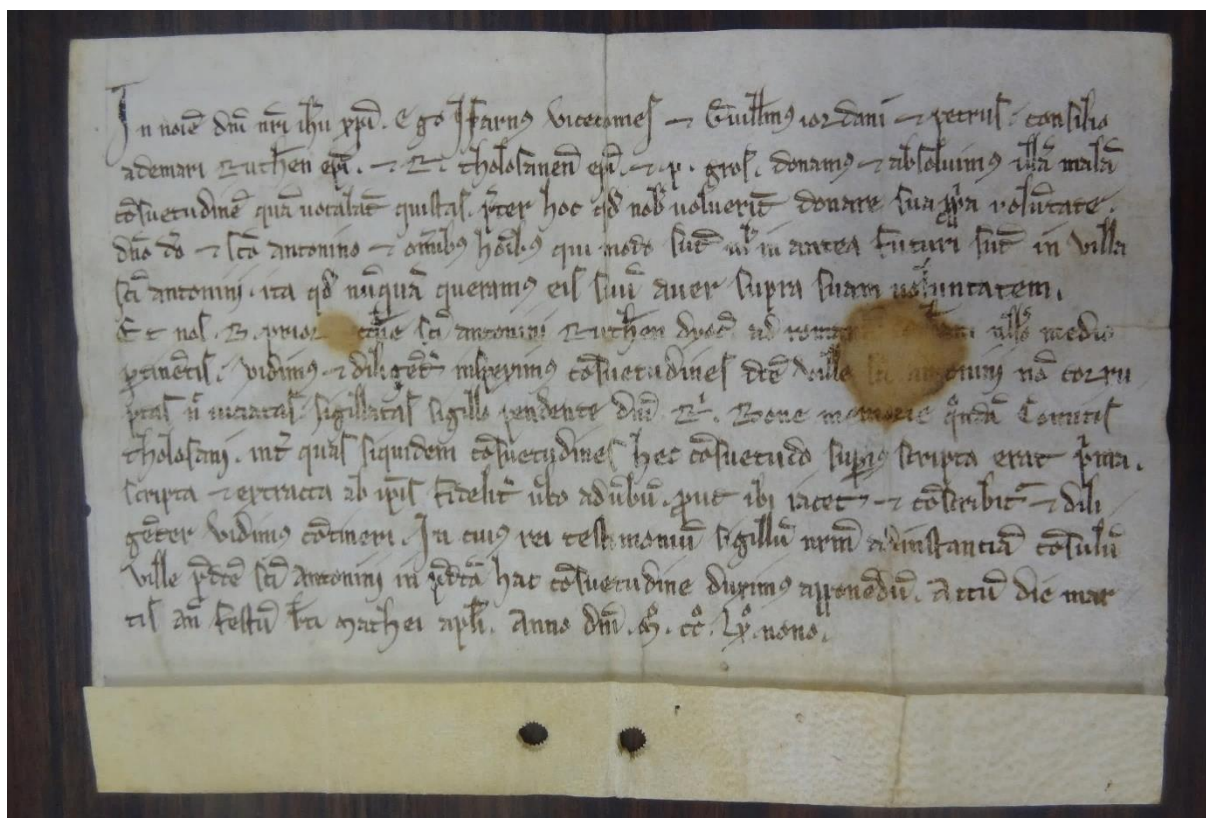 In noīe dnī nr̄i ihū xp̄i. Ego Isarnꝰ vicecomes ⁊ Guillm̄us iordani ⁊ petrus. consilio
ademari Ruthen̄ ep̄i. ⁊ R. tholosanen̄ ep̄i. ⁊ p. gros. donamꝰ ⁊ absoluimꝰ illā malā
cōsuetudinē quā vocabāt quistas. p̄ter hoc qd̄ nob̄ uoluerīt donare sua ꝓp̄a volūtate.
dn̄o dō ⁊ sc̄o antonino ⁊ omībus hoībus qui modo sūt ul̄ in antea futuri sūt in villa
sc̄i antonini. ita qd̄ nūquā queramus eis suū aver supra suam uoluntatem.
Et nos. B. prior sc̄i antonini Ruthen̄ dyoc̄ ad nullo medio
ꝑtinētis. vidimus ⁊ diligēt̄ inspeximus cōsuetudines dc̄e ville sc̄i antonini nō corru
ptas n̄ uiciatas. sigillatas sigillo pendente dn̄i. R. Bone memorie qͦndā Comitis
tholosani. int̄ quas siquidem cōsuetudines hec cōsuetudo supiꝰ scripta erat p̄ma.
scripta ⁊ extracta ab ip̄is fidelit̄ ūbo ad ūbū. ꝓut ibi iacet ⁊ cōscribit̄ ⁊ dili
gēter vidimꝰ cōtineri. In cuiꝰ rei testimoniū sigillū nrm̄ ad instantiā cōsulū
ville p̄dc̄e sc̄i antonini in p̄dc̄a hac cōsuetudine duximꝰ apponēdū. Actū die mar
tis an̄ festū bt̄i mathei apl̄i. Anno dn̄i. Mͦ. ccͦ. lxͦ. nono.